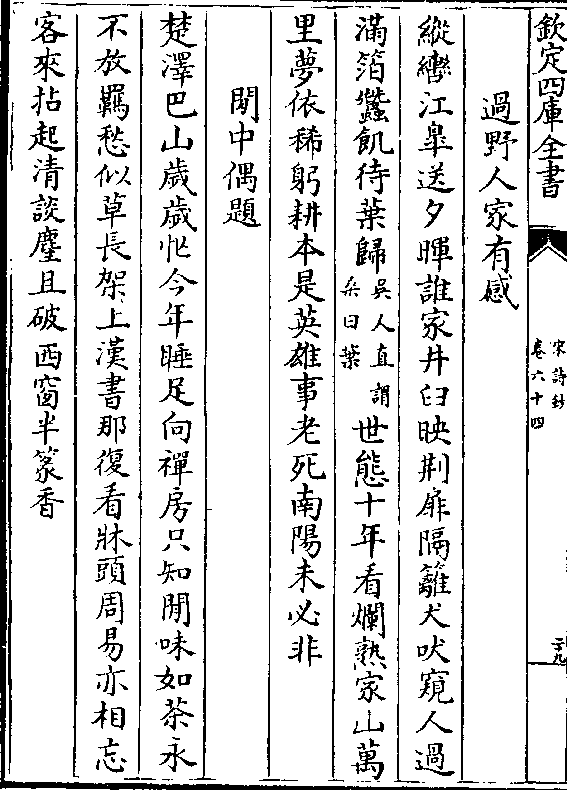 欽定四庫全書
宋詩鈔
卷六十四
二十九
過野人家有感
縱轡江臯送夕暉誰家井臼映荆扉隔籬犬吠窺人過
滿箔蠶飢待葉歸吳人直謂桒曰葉世態十年看爛熟家山萬
里夢依稀躬耕本是英雄事老死南陽未必非
閒中偶題
楚澤巴山歲歲忙今年睡足向禪房只知閒味如茶永
不放羈愁似草長架上漢書那復看牀頭周易亦相忘
客來拈起清談麈且破西窗半篆香